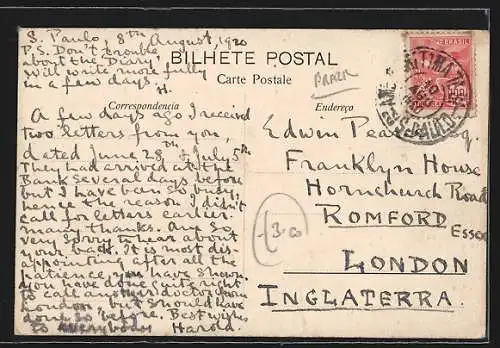 S. Paulo, 8th August, 1920
P.S. Don't trouble
about the 'Diary',
will write more fully
in a few days.
H.
BILHETE POSTAL
Carte Postale
BRASIL
Correspondencia
Endereço
A few days ago I received
two letters from you,
dated June 28th & July 5th
They had arrived at the
Bank several days before
but I have been so busy,
hence the reason I didn't
call for letters earlier.
Many thanks. Am so
very sorry to hear about
your back. It is most dis-
appointing after all the
patience you have shown.
You have done quite right
to call another doctor from
London, but should have
done so before. Best wishes
to everybody Harold.
Edwin
Franklyn House
Hornchurch Road
ROMFORD
Essex
LONDON
INGLATERRA.